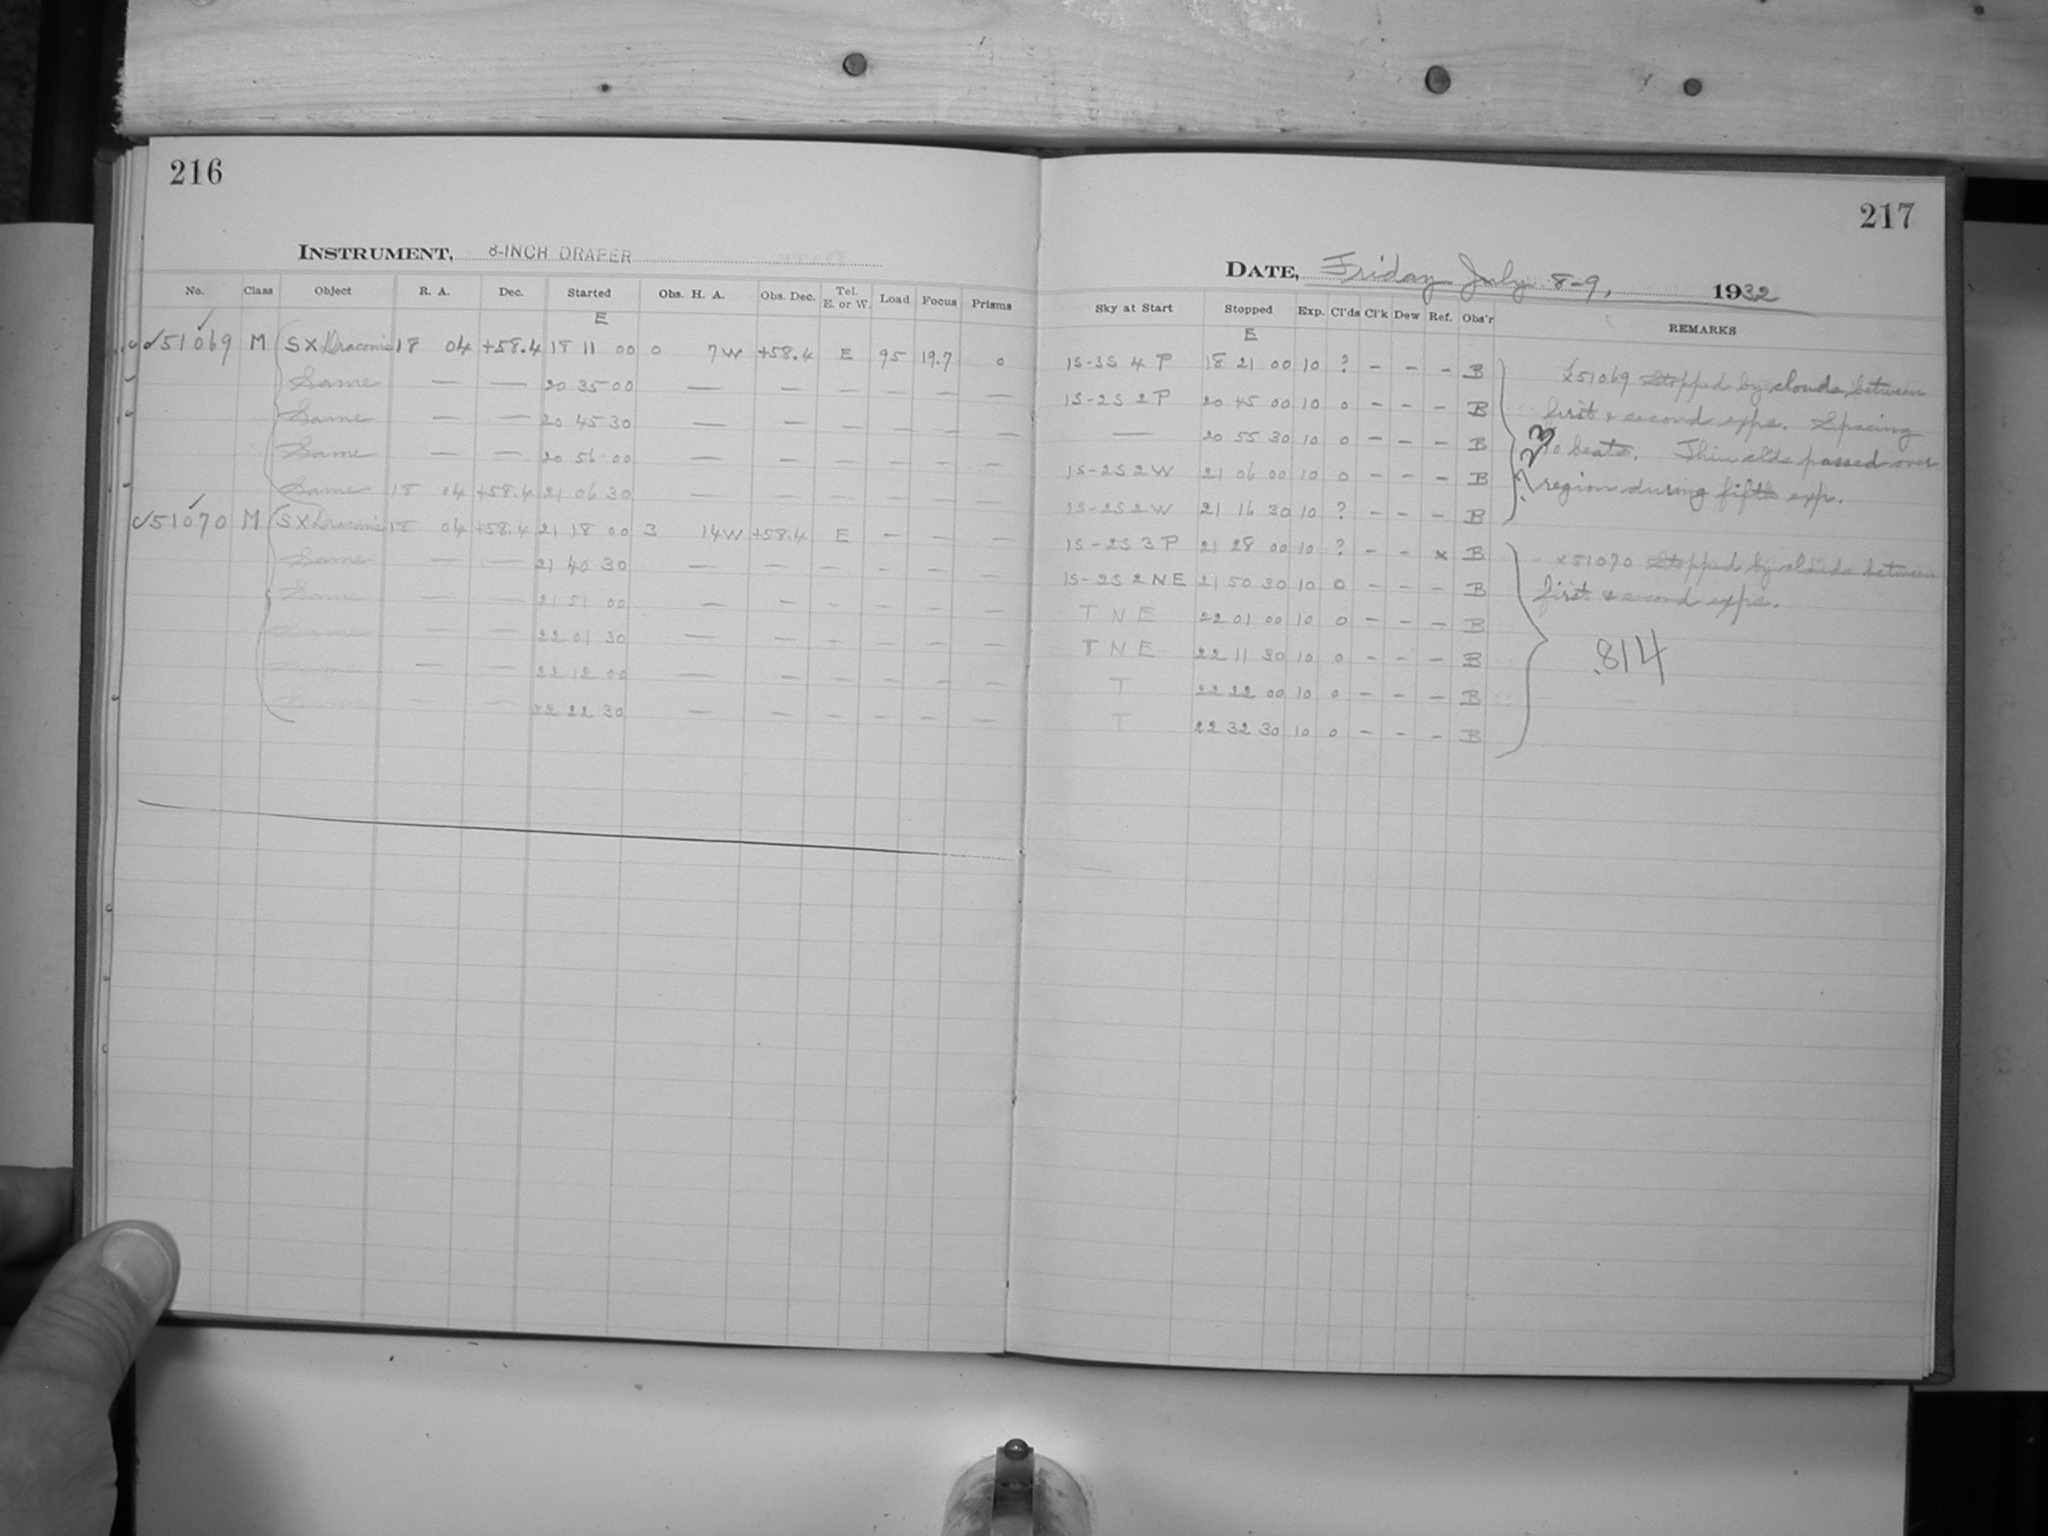 216
INSTRUMENT, 8-INCH DRAPER
No. Class Object R. A. Dec. Started Obs. H. A. Obs. Dec. Tel. E. or W. Load Focus Prisms
E
✓51069 M SX Draconis 18 04 +58.4 18 11 00 0 7W +58.4 E 95 19.7 0
Same — — 20 35 00 — — — — — —
Same — — 20 45 30 — — — — — —
Same — — 20 56 00 — — — — — —
Same 18 04 +58.4 21 06 30 — — — — — —
✓51070 M SX Draconis 18 04 +58.4 21 18 00 3 14W +58.4 E — — —
Same — — 21 40 30 — — — — — —
Same — — 21 51 00 — — — — — —
Same — — 22 01 30 — — — — — —
Same — — 22 12 00 — — — — — —
Same — — 22 22 30 — — — — — —
217
DATE, Friday July 8-9, 1932
Sky at Start Stopped Exp. Cl'ds Cl'k Dew Ref. Obs'r REMARKS
E
1S-3S 4 P 18 21 00 10 ? - - - B
1S-2S 2 P 20 45 00 10 0 - - - B
— 20 55 30 10 0 - - - B
1S-2S 2 W 21 06 00 10 0 - - - B
1S-2S 2 W 21 16 30 10 ? - - - B
1S-2S 3 P 21 28 00 10 ? - - x B
1S-2S 2 NE 21 50 30 10 0 - - - B
T N E 22 01 00 10 0 - - - B
T N E 22 11 30 10 0 - - - B
T 22 22 00 10 0 - - - B
T 22 32 30 10 0 - - - B
x51069 Stopped by clouds between
first & second exps. Spacing
beats. Thin clds passed over
region during fifth exp.
x51070 Stopped by clouds between
first & second exps.
.814